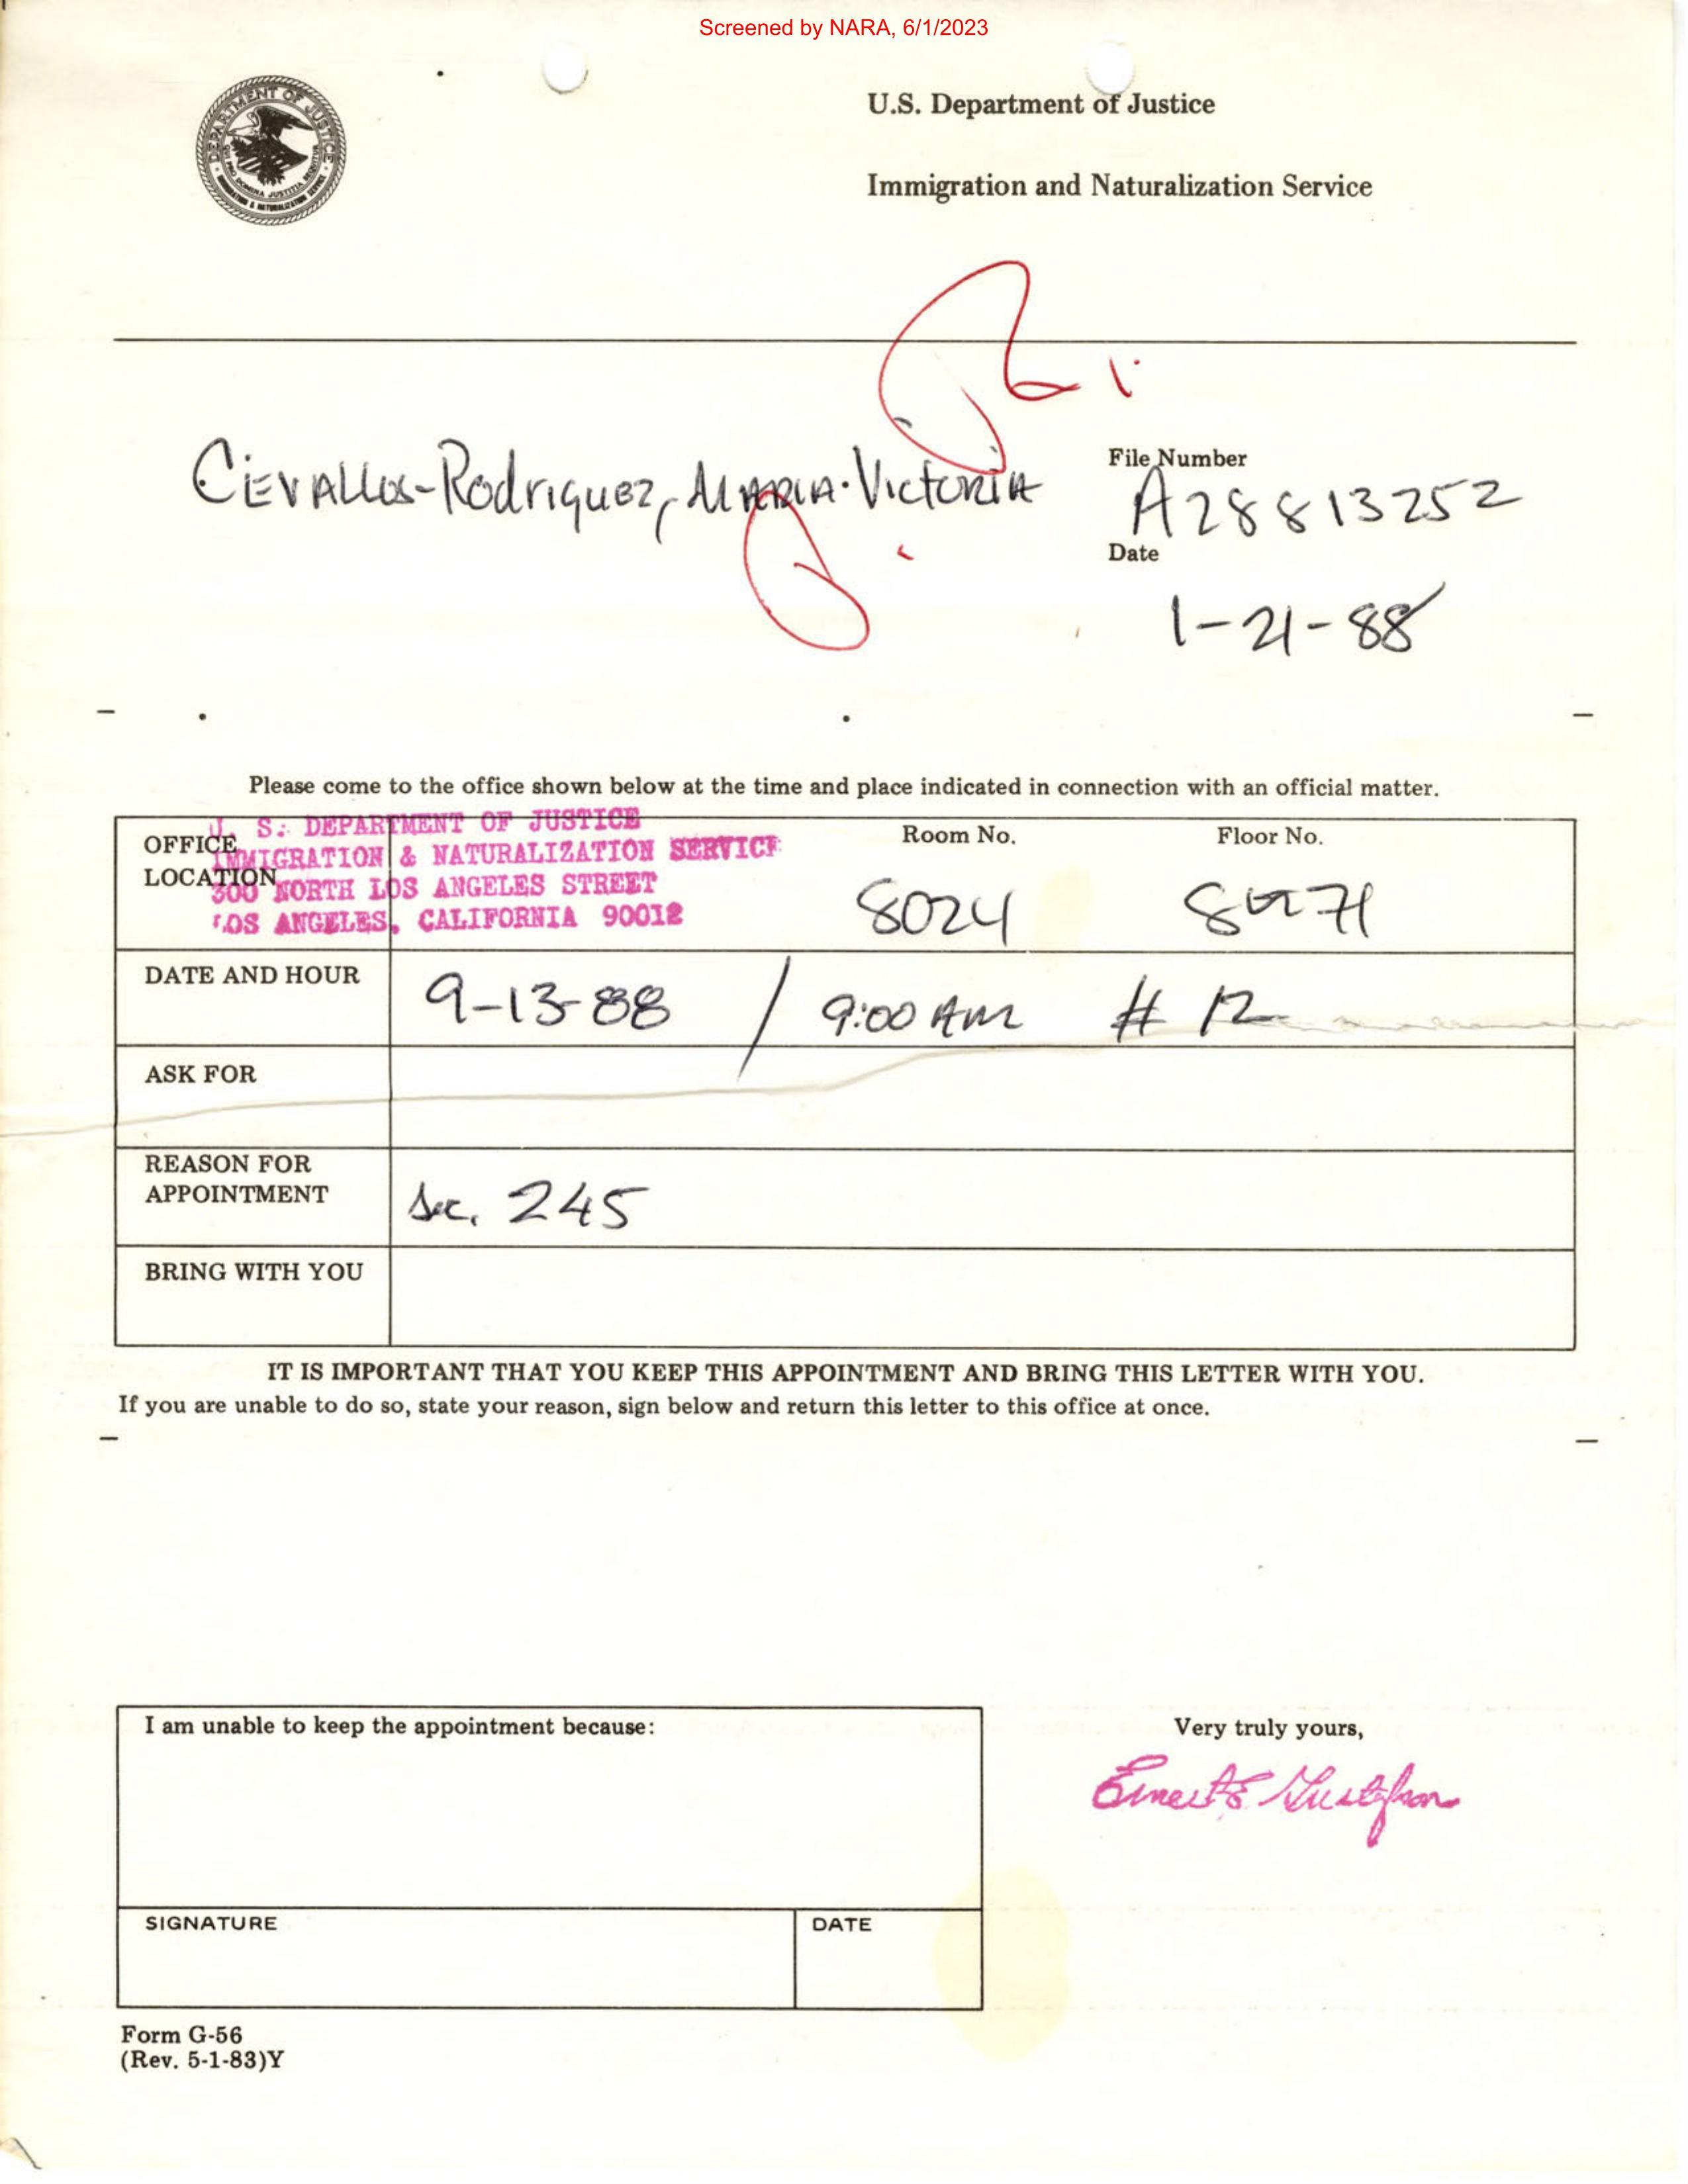 Screened by NARA, 6/1/2023
DEPARTMENT OF JUSTICE
QUI PRO DOMINA JUSTITIA SEQUITUR
IMMIGRATION & NATURALIZATION SERVICE
U.S. Department of Justice
Immigration and Naturalization Service
CEVALLOS-RODRIQUEZ, MARIA-VICTORIA
File Number
A28813252
Date
1-21-88
Please come to the office shown below at the time and place indicated in connection with an official matter.
OFFICE LOCATION
U. S. DEPARTMENT OF JUSTICE
IMMIGRATION & NATURALIZATION SERVICE
300 NORTH LOS ANGELES STREET
LOS ANGELES, CALIFORNIA 90012
Room No.
8024
Floor No.
DATE AND HOUR
9-13-88 / 9:00 AM # 12
ASK FOR
REASON FOR
APPOINTMENT
Sec. 245
BRING WITH YOU
IT IS IMPORTANT THAT YOU KEEP THIS APPOINTMENT AND BRING THIS LETTER WITH YOU.
If you are unable to do so, state your reason, sign below and return this letter to this office at once.
I am unable to keep the appointment because:
Very truly yours,
Ernest E Gustafson
SIGNATURE
DATE
Form G-56
(Rev. 5-1-83)Y